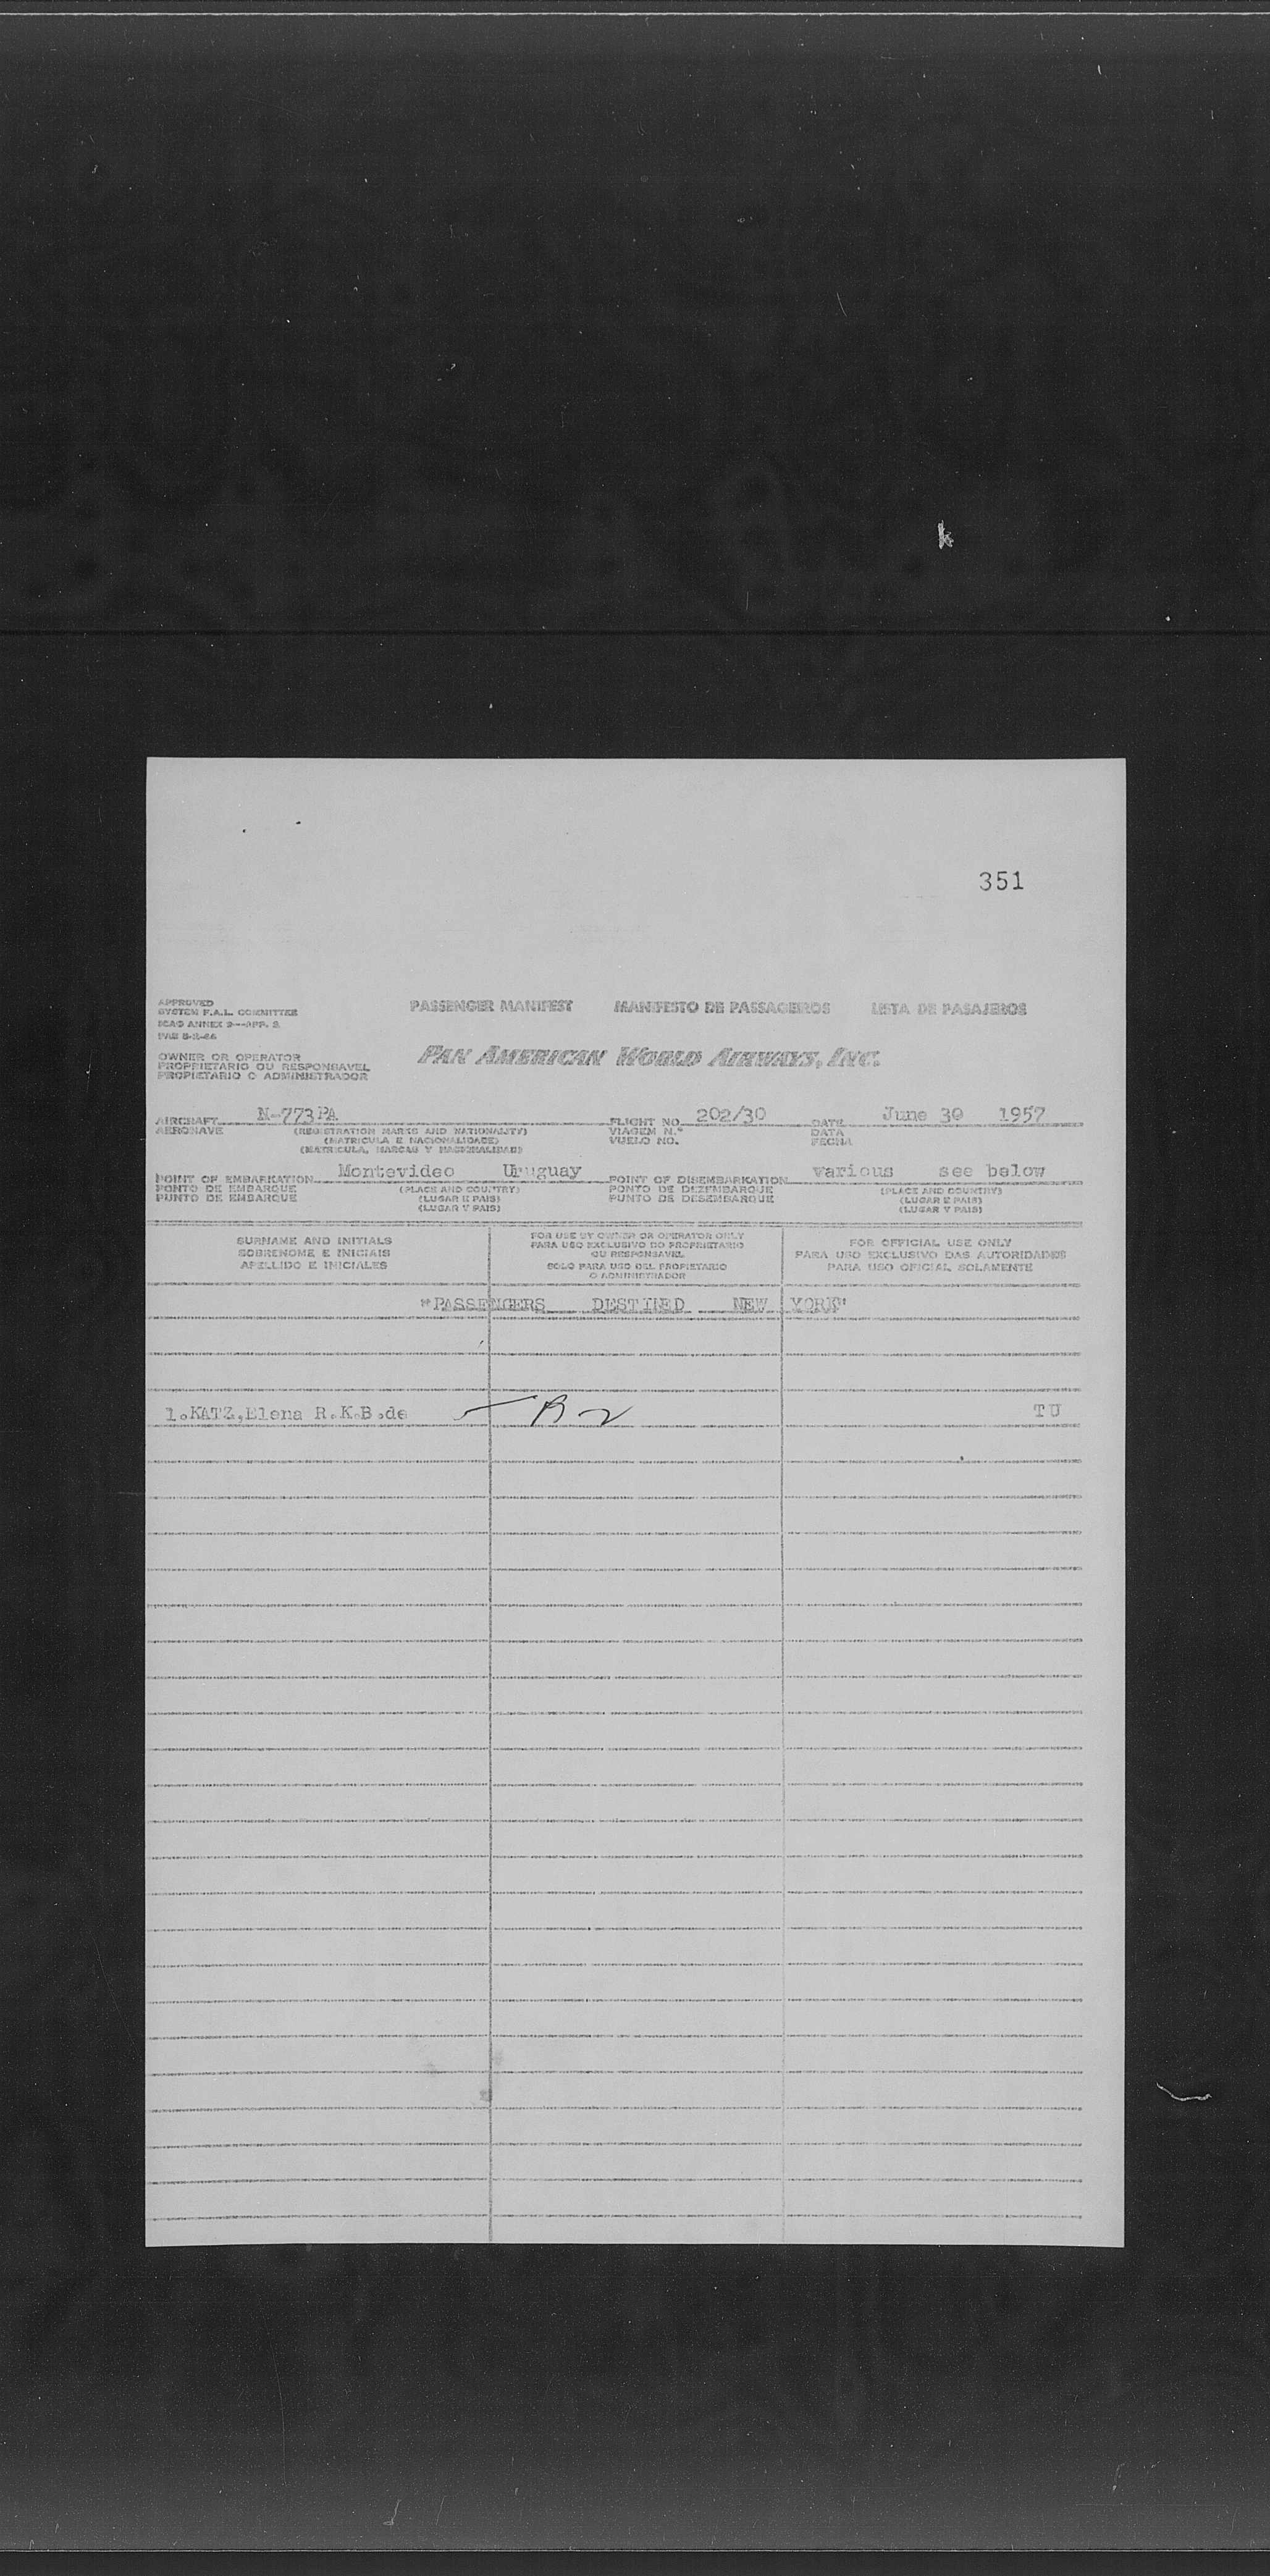 351
APPROVED
SYSTEM F.A.L. COMMITTEE
ICAO ANNEX 9—APP. 2
PASSENGER MANIFEST MANIFESTO DE PASSAGEIROS LISTA DE PASAJEROS
OWNER OR OPERATOR
PROPRIETARIO OU RESPONSAVEL
PROPIETARIO O ADMINISTRADOR
PAN AMERICAN WORLD AIRWAYS, INC.
AIRCRAFT N-773PA FLIGHT NO. 202/30 DATE June 30 1957
AERONAVE (REGISTRATION MARKS AND NATIONALITY) VIAGEM N.º DATA
(MATRICULA E NACIONALIDADE) VUELO NO. FECHA
(MATRICULA, MARCAS Y NACIONALIDAD)
POINT OF EMBARKATION Montevideo Uruguay POINT OF DISEMBARKATION various see below
PONTO DE EMBARQUE (PLACE AND COUNTRY) PONTO DE DEZEMBARQUE (PLACE AND COUNTRY)
PUNTO DE EMBARQUE (LUGAR E PAIS) PUNTO DE DESEMBARQUE (LUGAR E PAIS)
(LUGAR Y PAIS) (LUGAR Y PAIS)
SURNAME AND INITIALS
SOBRENOME E INICIAIS
APELLIDO E INICIALES
FOR USE BY OWNER OR OPERATOR ONLY
PARA USO EXCLUSIVO DO PROPRIETARIO
OU RESPONSAVEL
SOLO PARA USO DEL PROPIETARIO
O ADMINISTRADOR
FOR OFFICIAL USE ONLY
PARA USO EXCLUSIVO DAS AUTORIDADES
PARA USO OFICIAL SOLAMENTE
"PASSENGERS DESTINED NEW YORK"
1.KATZ,Elena R.K.B.de B2 TU